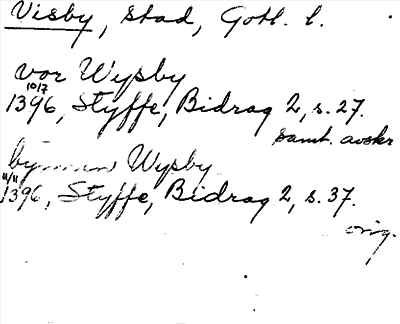 Visby, stad, Gotl. l.
vor Wysby
10/7
1396, Styffe, Bidrag 2, s. 27.
samt. avskr
Wysby
11/11
1396, Styffe, Bidrag 2, s. 37.
orig.